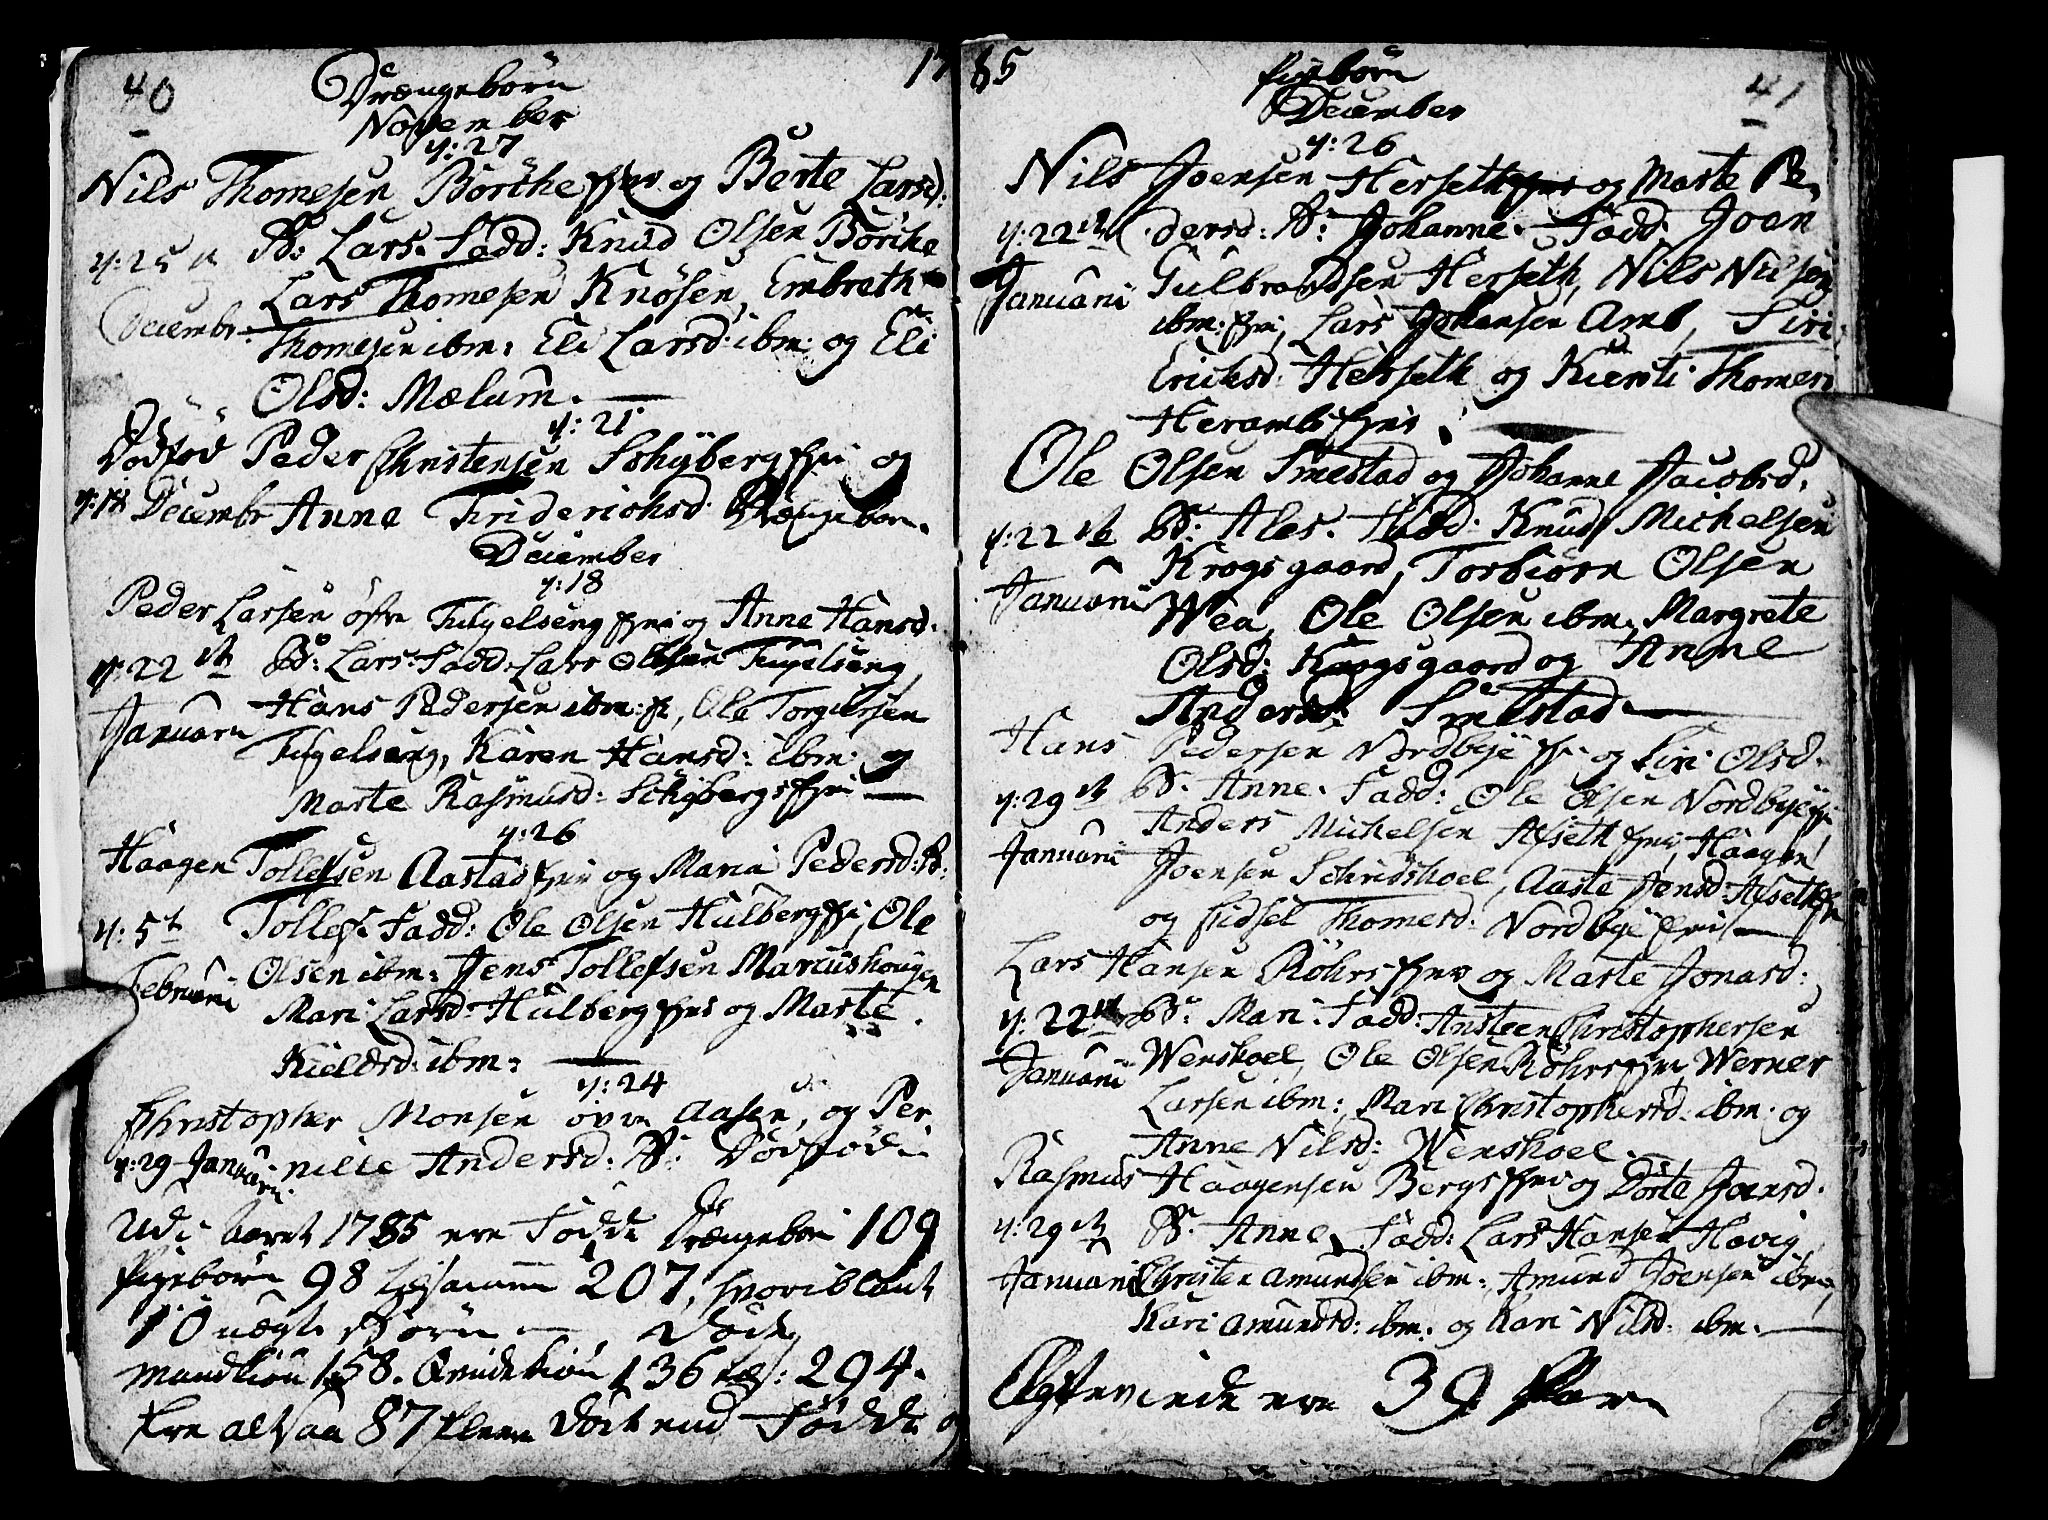 40
1785
Drængebørn
November
d: 27
Nils Thomesen Börche Eyer og Berte Larsd:
B: Lars. Fadd: Knud Olsen Börche
d: 25
Lars Thomesen Knösen, Embreth
Decembr.
Thomesen ibm: Eli Larsd: ibm: og Eli
Olsd: Mælum.
d: 21
Dödfød Peder Christensen Schyberg og
d: 18 Decembr Anne Friderichsd: Drængebarn.
December
d: 18
Peder Larsen öfre Fuglseng og Anne Hansd.
d: 22 B: Lars. Fadd: Lars Olsen Fuglseng,
Hans Pedersen ibm:, Ole Torgiersen
Januarii
Fuglseng, Karen Hansd: ibm: og
Marte Rasmusd: Schybergs
d: 26
Haagen Tollefsen Aastad og Maria Pedersd: B:
d: 5 Tollef. Fadd: Ole Olsen Hulberg, Ole
Olsen ibm: Jens Tollefsen Marcushougen
Februarii
Mari Larsd: Hulberg og Marte
Kieldsd: ibm:
d: 24
Christopher Monsen övre Aasen, og Per
d: 29 Januarii nille Andersd: B: Dödfød
Udi aaret 1785 ere Födde Drængebørn 109
Pigebørn 98 tilsammen 207, hvoriblant
10 uægte Børn, Døde
Mandkiön 158. Qvindekiön 136 er: 294.
Ere altsaa 87 fleere Döde end Födde
41
Pigebørn
December
d: 26
Nils Joensen Herseth og Marte Pe
d: 22 dersd: B: Johanne. Fadd: Joan
Januarii Gulbrandsen Herseth, Nils Nilsen
ibm:, Lars Johansen Amb, Siri
Ericksd: Herseth og Kiersti Thomesd
Herambs
Ole Olsen Smestad og Johanne Jacobsd.
d: 22 B: Ales. Fadd: Knud Michelsen
Krogsgaard, Torbiörn Olsen
Januarii
Wea, Ole Olsen ibm, Margrete
Olsd: Krogsgaard og Anne
Andersd: Smestad
Hans Pedersen Nordbye og Siri Olsd.
d: 29 B. Anne. Fadd: Ole Olsen Nordbye
Anders Michelsen Alseth, Haagen
Januarii Joensen Schredskoel, Aaste Jensd Alseth
og Sidsel Thomesd: Nordbye
Lars Hansen Röhrs og Marte Jonasd:
d: 22 B: Mari. Fadd: Ansteen Christophersen
Wenskoel, Ole Olsen Röhrs, Werner
Januarii
Larsen ibm: Mari Christophersd: ibm: og
Anne Nilsd: Wenskoel.
Rasmus Haagensen Bergs og Dorte Joensd.
d: 29 B. Anne, Fadd: Lars Hansen Hovig,
Januarii Christen Amundsen ibm:, Amund Joensen ibm,
Kari Amundsd: ibm: og Kari Nilsd: ibm.
Ægteviede ere 39 Par